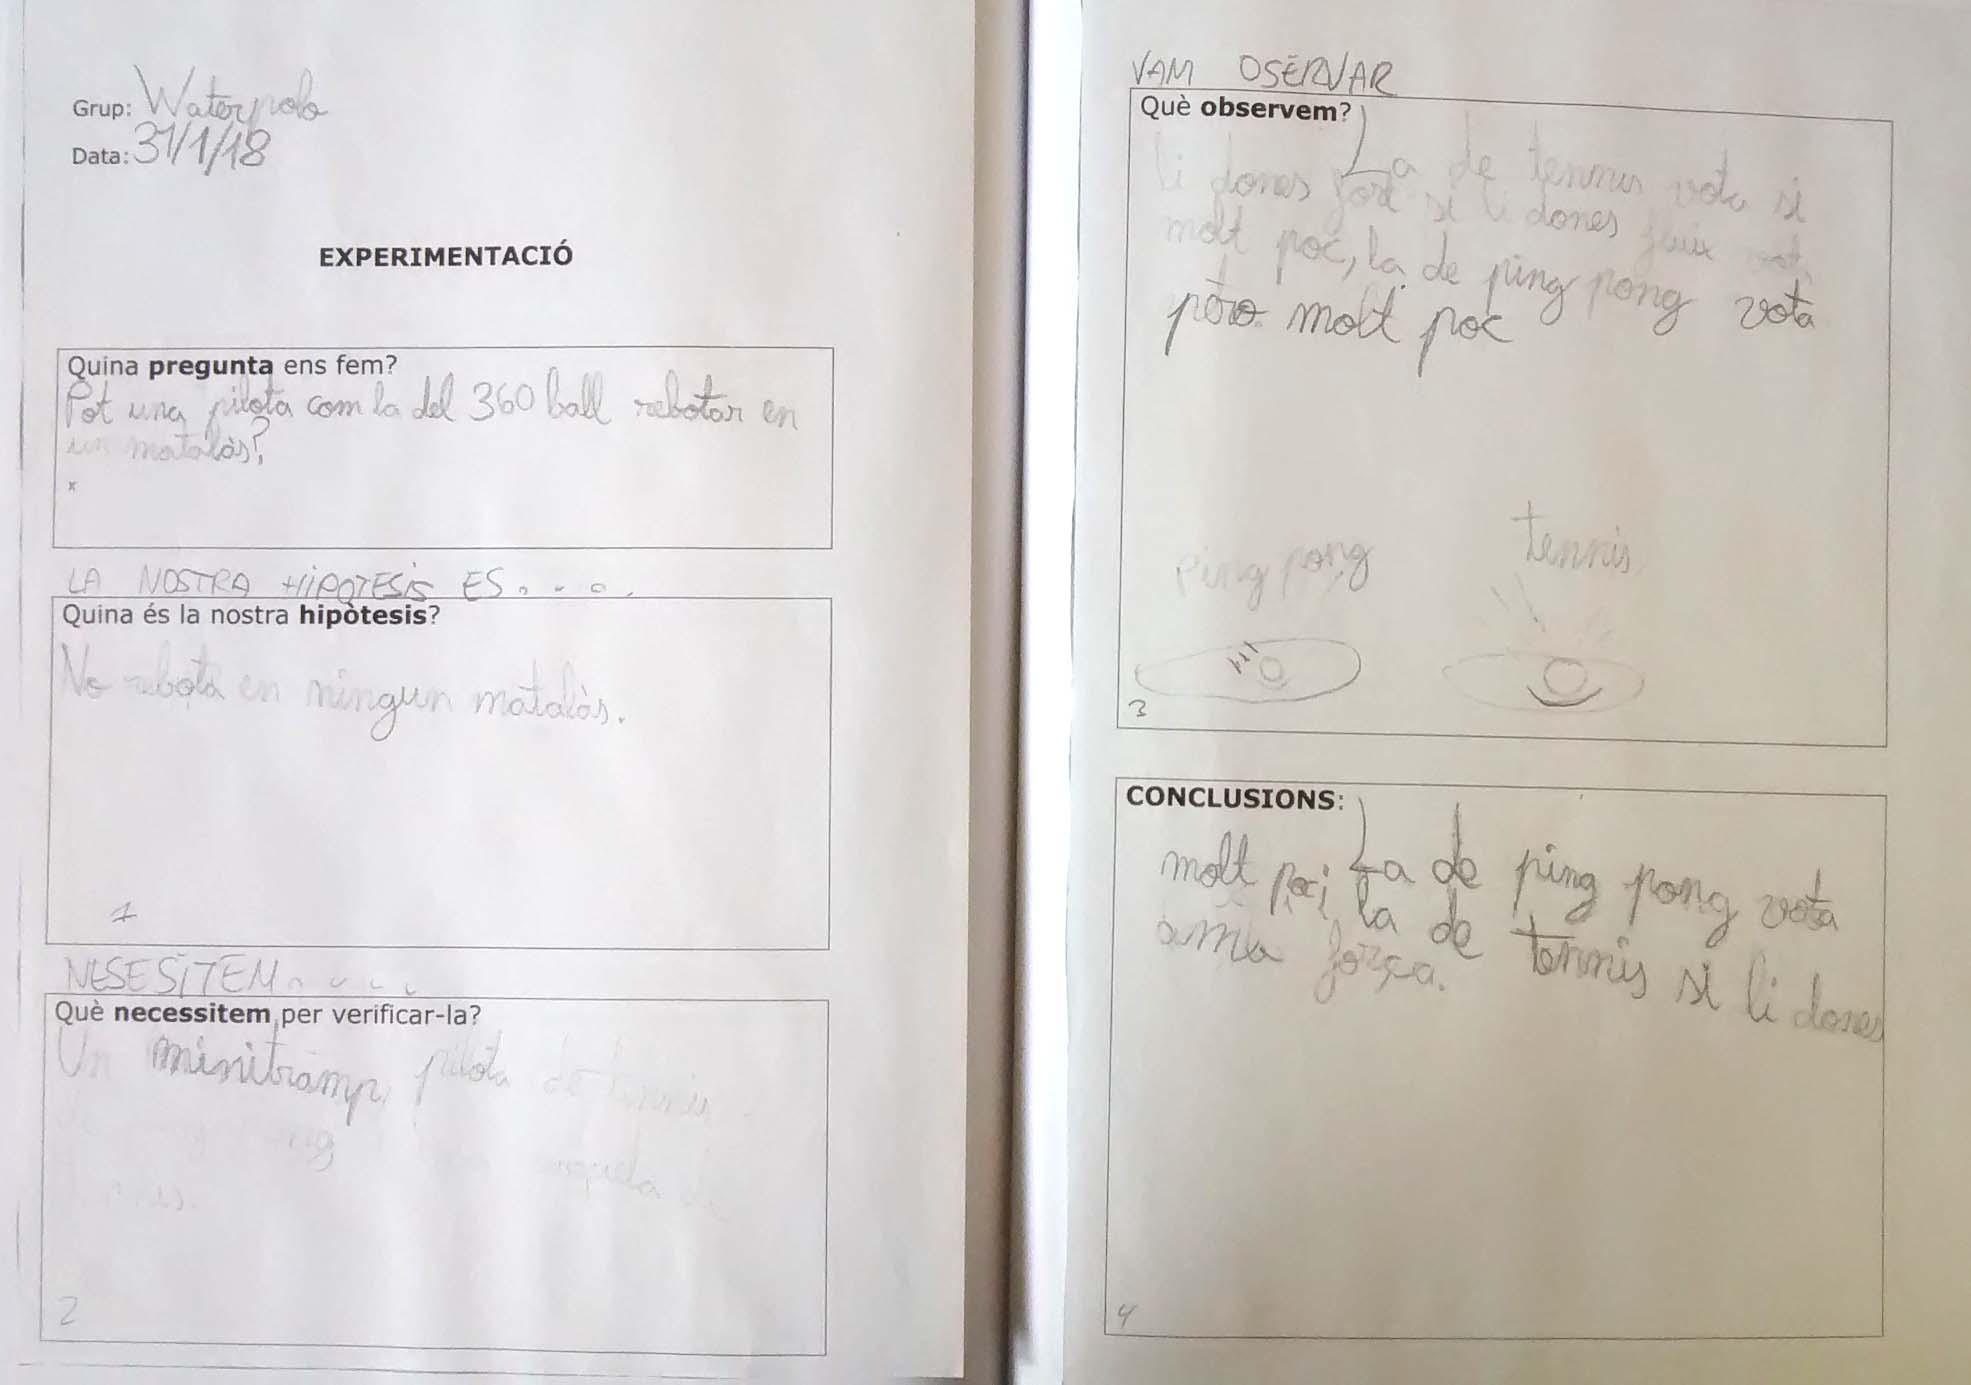 Grup: Waterpolo
Data: 31/1/18
EXPERIMENTACIÓ
Quina pregunta ens fem?
Pot una pilota com la del 360 ball rebotar en
un matalàs?
x
LA NOSTRA HIPOTESIS ES....
Quina és la nostra hipòtesis?
No rebota en ningun matalàs.
1
NESESITEM....
Què necessitem per verificar-la?
Un minitramp, pilota de tennis
de ping pong
raqueta de
2
VAM OSERVAR
Què observem?
La de tennis vota si
li dones fort si li dones fluix vota
molt poc, la de ping pong vota
pero molt poc
ping pong
tennis
3
CONCLUSIONS:
La de ping pong vota
molt poc i la de tennis si li dones
amb força.
4